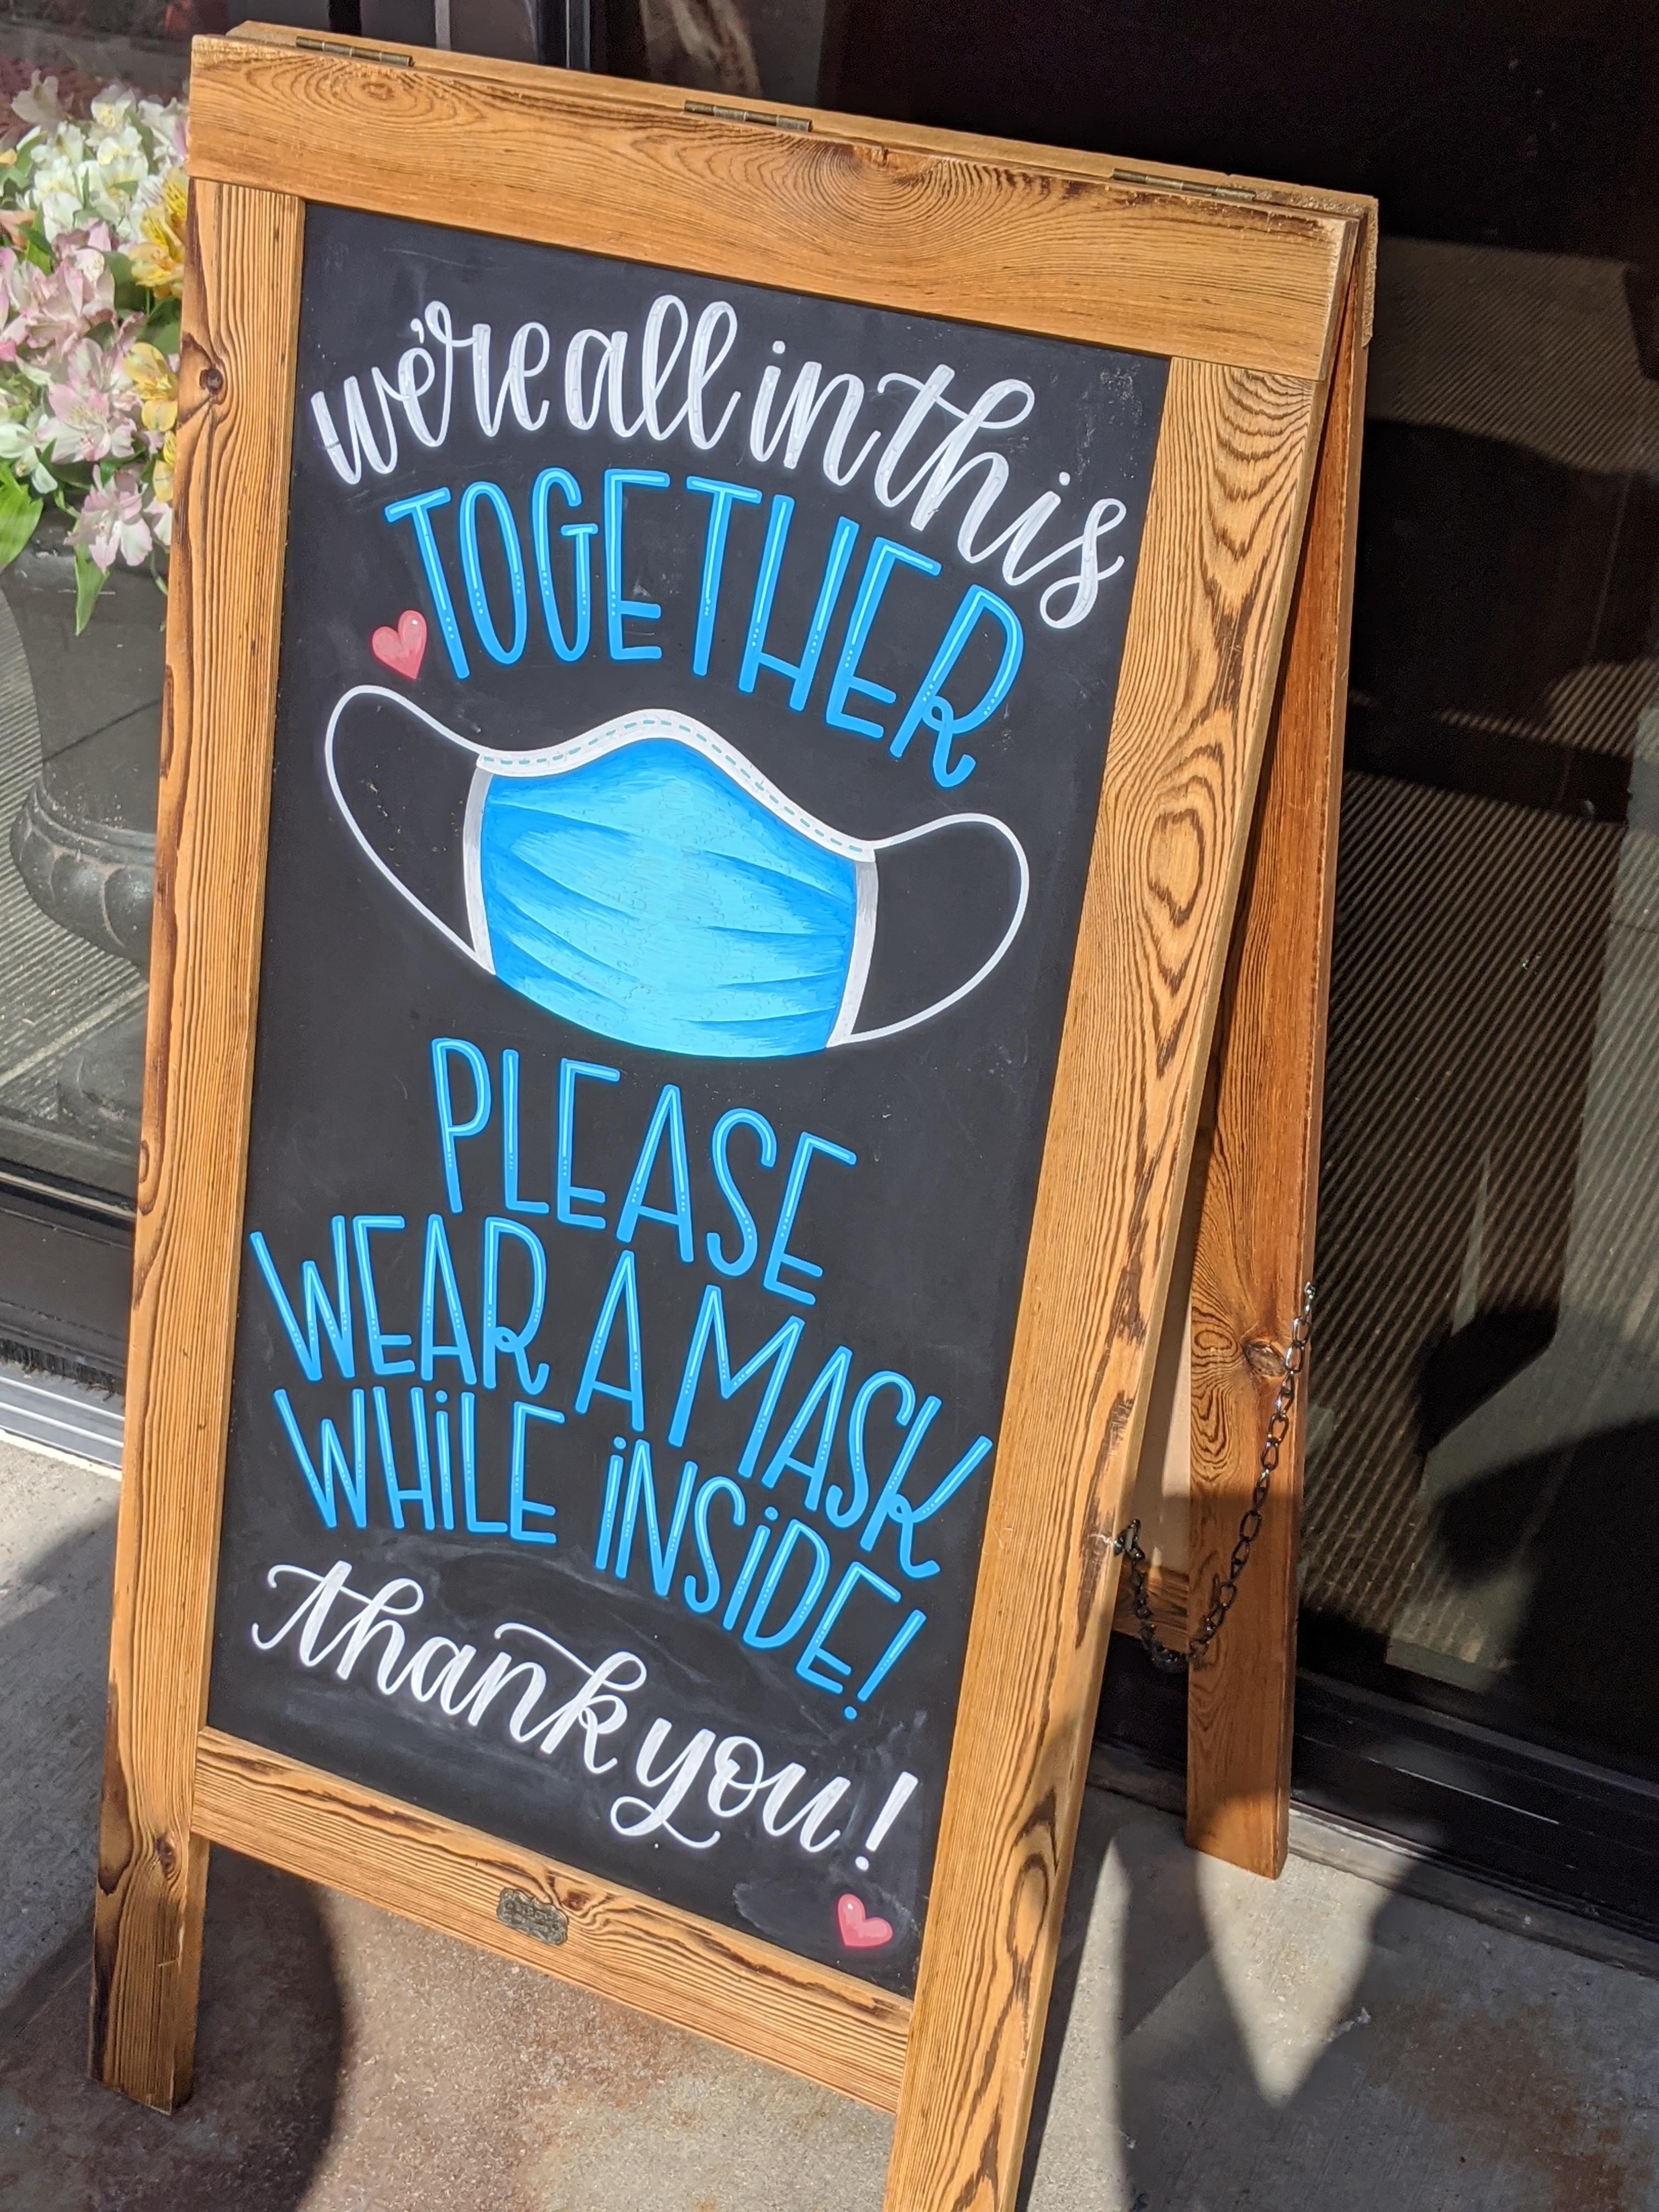 we're all in this
TOGETHER
PLEASE
WEAR A MASK
WHiLE iNSiDE!
thank you!